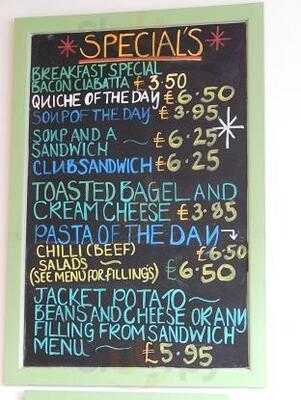 SPECIAL'S
BREAKFAST SPECIAL
BACON CIABATTA £3.50
QUICHE OF THE DAY £6.50
SOUP OF THE DAY £3.95
SOUP AND A £6.25
SANDWICH
CLUB SANDWICH £6.25
TOASTED BAGEL AND
CREAM CHEESE £3.85
PASTA OF THE DAY
CHILLI (BEEF) £6.50
SALADS £6.50
(SEE MENU FOR FILLINGS)
JACKET POTATO
BEANS AND CHEESE OR ANY
FILLING FROM SANDWICH
MENU £5.95